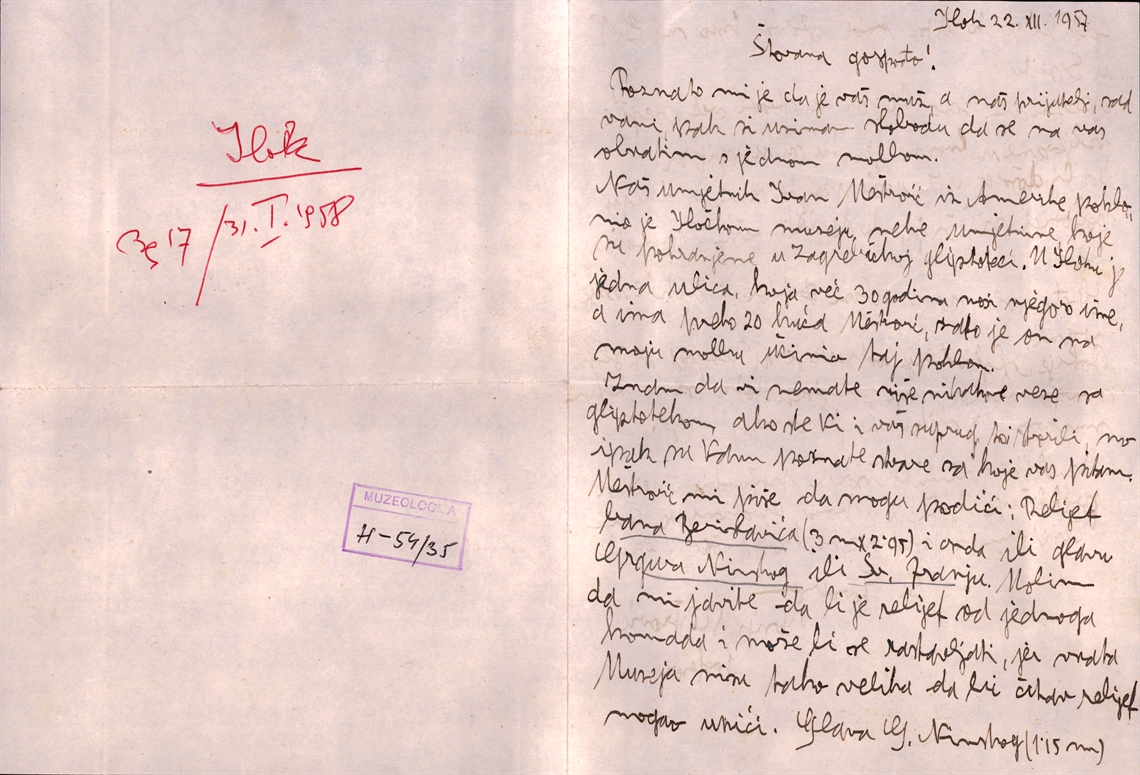 Ilok
Br 17 / 31. I. 1958
MUZEOLOGIJA
H-54/35
Ilok 22. XII. 1957
Štovana gospođo!
Poznato mi je da je vaš muž, a naš prijatelj, sad
vani, pak si uzimam slobodu da se na vas
obratim s jednom molbom.
Naš umjetnik Ivan Meštrović iz Amerike poklo-
nio je Iločkom muzeju neke umjetnine, koje
su pohranjene u Zagrebačkoj gliptoteci. U Iloku je
jedna ulica, koja već 30 godina nosi njegovo ime,
a ima preko 20 kuća Meštrović, zato je on na
moju molbu učinio taj poklon.
Znam da vi nemate više nikakve veze sa
gliptotekom ako ste Vi i vaš suprug to stvorili, no
ipak su Vam poznate stvari za koje vas pitam.
Meštrović mi piše da mogu podići: Reljef
bana Berislavića (3 m x 2·95) i onda ili glavu
Grgura Ninskog ili Sv. Franju. Molim
da mi javite da li je reljef od jednoga
komada i može li se rastavljati, jer vrata
Muzeja nisu tako velika da bi čitav reljef
mogao unići. Glava G. Ninskog (1·15 m)